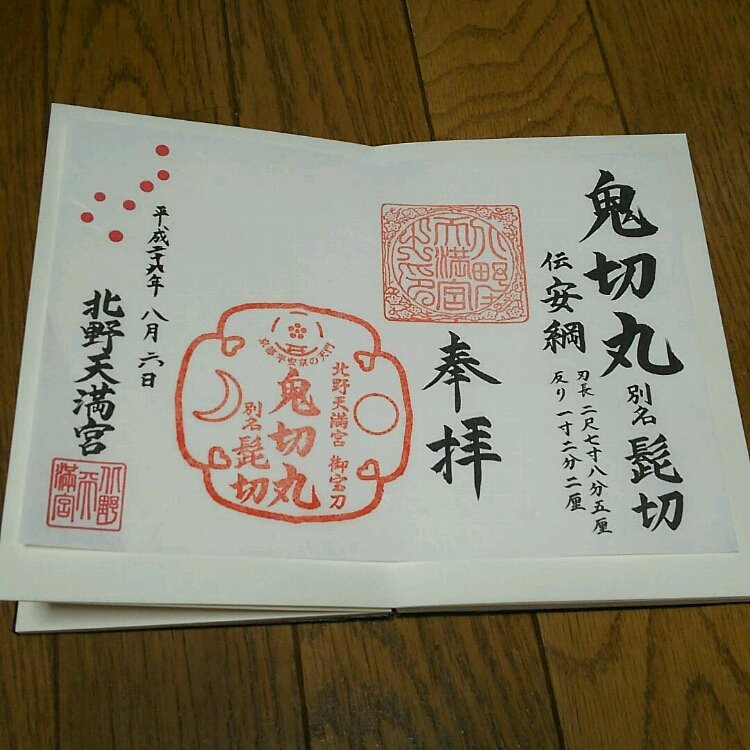 鬼切丸 別名 髭切
刃長 二尺七寸八分五厘
反り 一寸二分二厘
伝 安綱
奉拝
北野天満宮 御宝刀
鬼切丸
別名 髭切
平成二十九年 八月六日
北野天満宮
北野天満宮